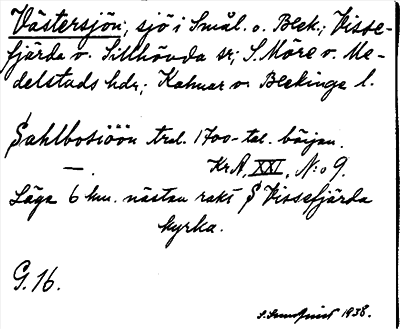 Västersjön, sjö i Smål. o. Blek.; Visse-
fjärda o. Sillhövda sr; S. Möre o. Me-
delstads hdr; Kalmar o. Blekinge l.
Sahlbosiöön trol. 1700-tal. början.
—. KrA, XXI, N:o 9.
Läge 6 km. nästan rakt S Vissefjärda
kyrka.
G. 16.
1938.